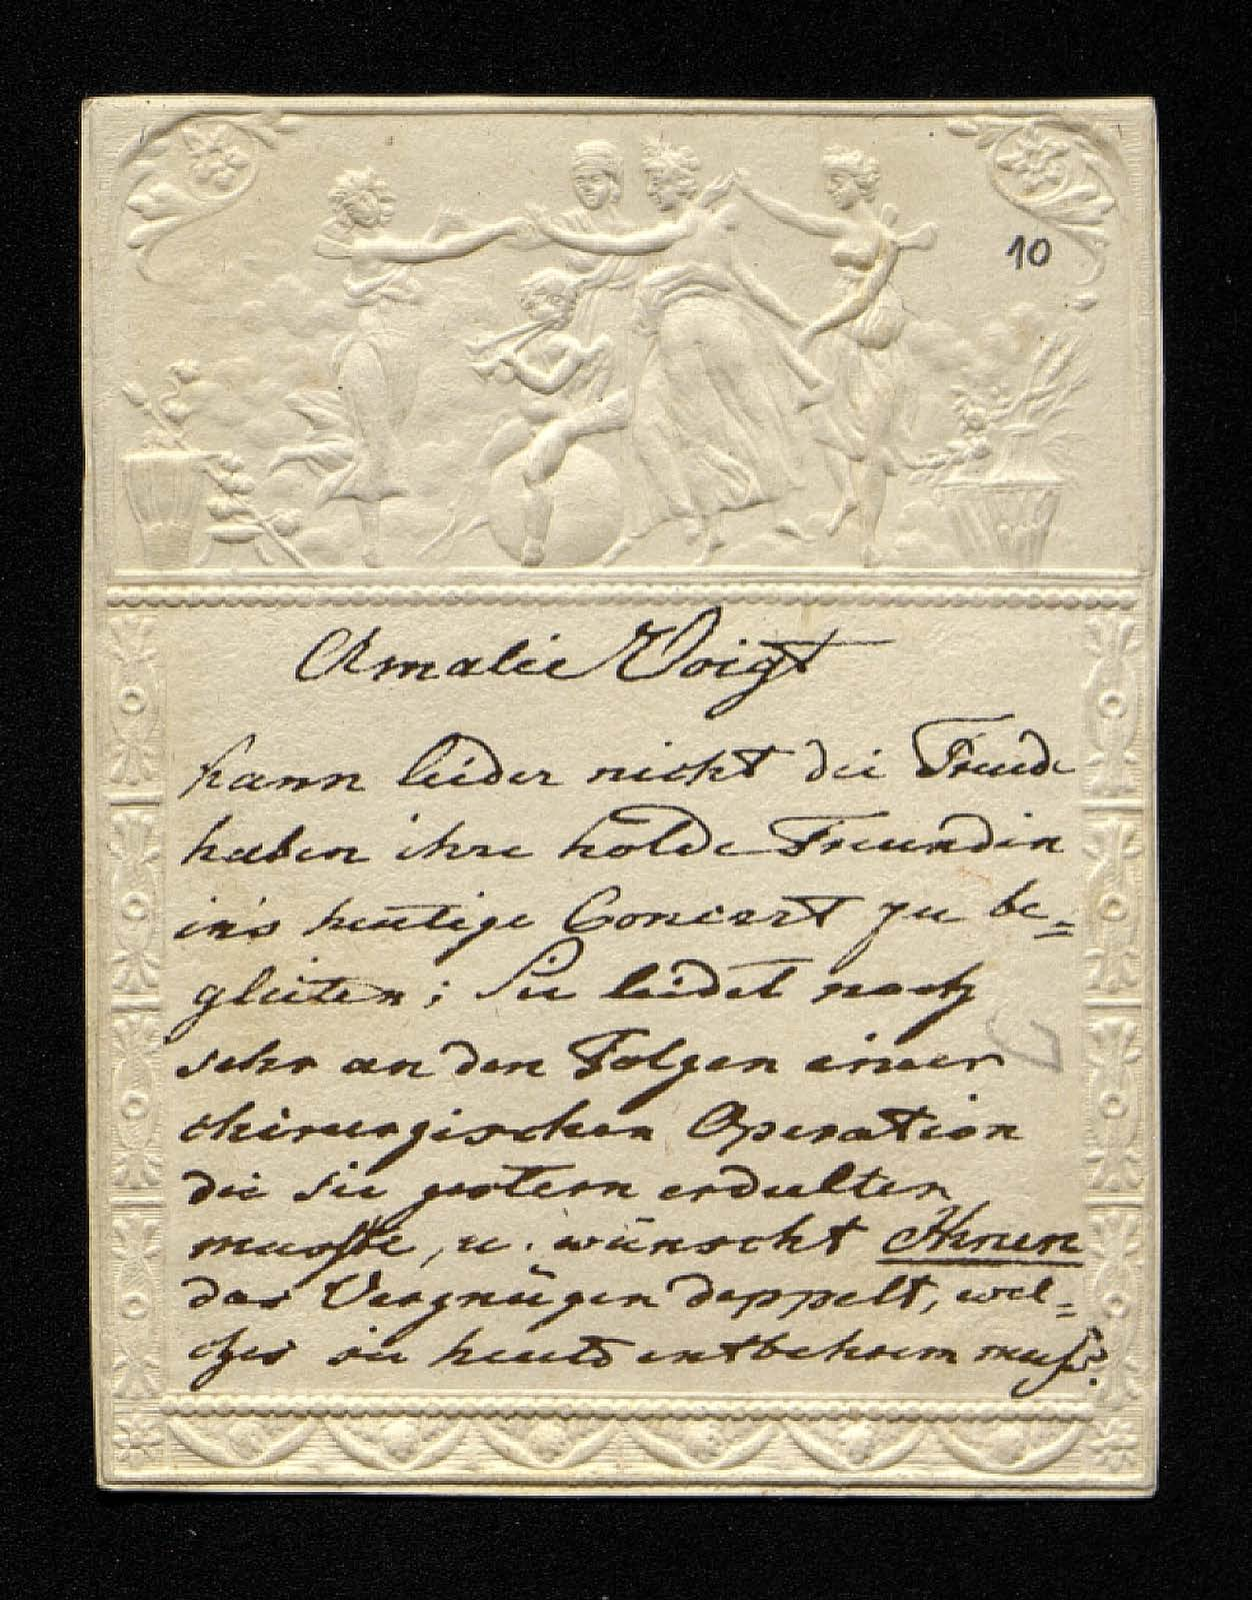 10
Amalie Voigt
kann leider nicht die Freude
haben ihre holde Freundin
in's heutige Concert zu be=
gleiten; Sie leidet noch
sehr an den Folgen einer
chirurgischen Operation
die sie gestern erdulten
mußte, u. wünscht Ihnen
das Vergnügen doppelt, wel=
ches sie heute entbehren muß.